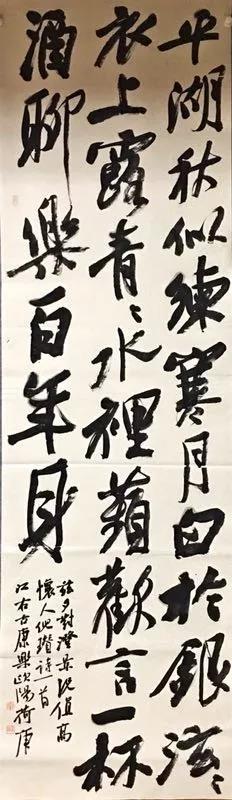 平湖秋似練寒月白於銀泫〻
衣上露青〻水裡蘋歡言一杯
酒聊樂百年身
茲夕對澄景況值高
懷人倪瓚詩一首
江右古康樂歐陽荷庚